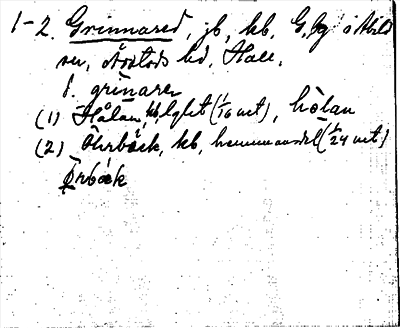 1-2. Grinnared, jb, kb, G, Jg i Abild
sn, Årstads hd, Hall.
1. grinarer
(1) Hålan, kb, lght (1/16 mt), hòlan
(2) Öhrbäck, kb, hemmansdel (1/24 mt)
Örbäck